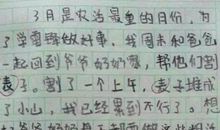 3月是农活最重的日份,为
了学雷锋做好事,我周末和爸爸
一起回到爷爷奶奶家,帮他们割
麦子。割了一个上午,麦子堆成
了小山,我已经累到不行了。想